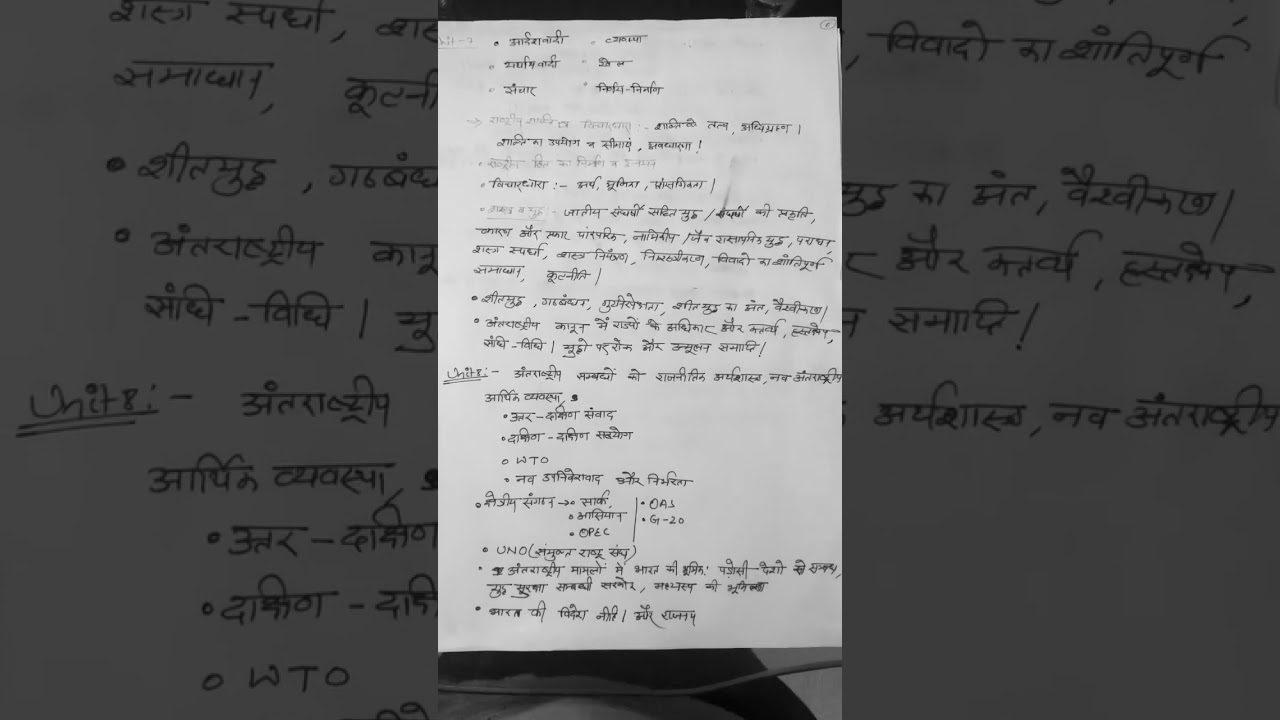 Unit-7 • आर्दशवादी • व्यवस्था
• यर्थाथवादी • खेल
• संचार • निर्णय-निर्माण
→ राष्ट्रीय शक्ति व विचारधारा :- शक्ति के तत्व, अधिग्रहण।
शक्ति का उपयोग व सीमायें, अवधारणा!
• राष्ट्रीय हित का निर्माण व
• विचारधारा :- अर्थ, भूमिका, प्रासंगिकता।
• शस्त्र व युद्ध :- जातीय संघर्षो सहित युद्ध / संघर्षो की प्रकृति,
कारण और प्रकार पांरपरिक, नाभिकीय / जैव रासायनिक युद्ध,
शस्त्र स्पर्धा, शस्त्र नियंत्रण, निशस्त्रीकरण, विवादो का शांतिपूर्ण
समाधान, कूटनीति।
• शीतयुद्ध, गठबंधन, गुटनिरपेक्षता, शीतयुद्ध का अंत, वैश्वीकरण।
• अंतराष्ट्रीय कानून में राज्यों के अधिकार और कर्तव्य, हस्तक्षेप,
संधि-विधि। युद्धो पर रोक और उन्मूलन समाप्ति!
Unit 8:- अंतराष्ट्रीय सम्बधों की राजनीतिक अर्थशास्त्र, नव अंतराष्ट्रीय
आर्थिक व्यवस्था,
• उत्तर-दाक्षिण संवाद
• दाक्षिण-दक्षिण सहयोग
○ WTO
• नव उपनिवेशवाद और निर्भरता
• क्षेत्रीय संगठन → • सार्क, • OAS
• आसियान • G-20
• OPEC
• UNO (संयुक्त राष्ट्र संघ)
• अंतराष्ट्रीय मामलो में भारत की भूमिका पडोसी देशो से सम्बध,
युद्ध सुरक्षा सम्बधी सरोकार, मध्यस्थ की भूमिका
• भारत की विदेश नीति। और राजनय